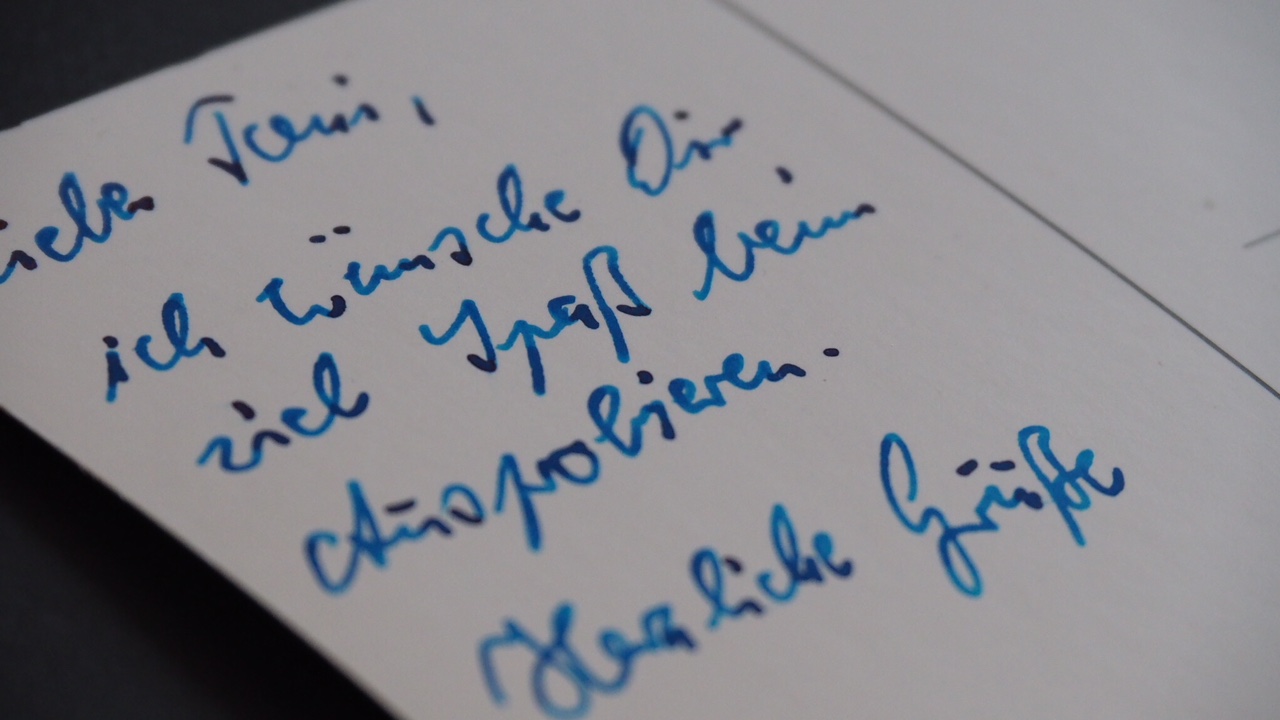 lieber Tomi,
ich wünsche Dir
viel Spaß beim
Ausprobieren.
Herzliche Grüße